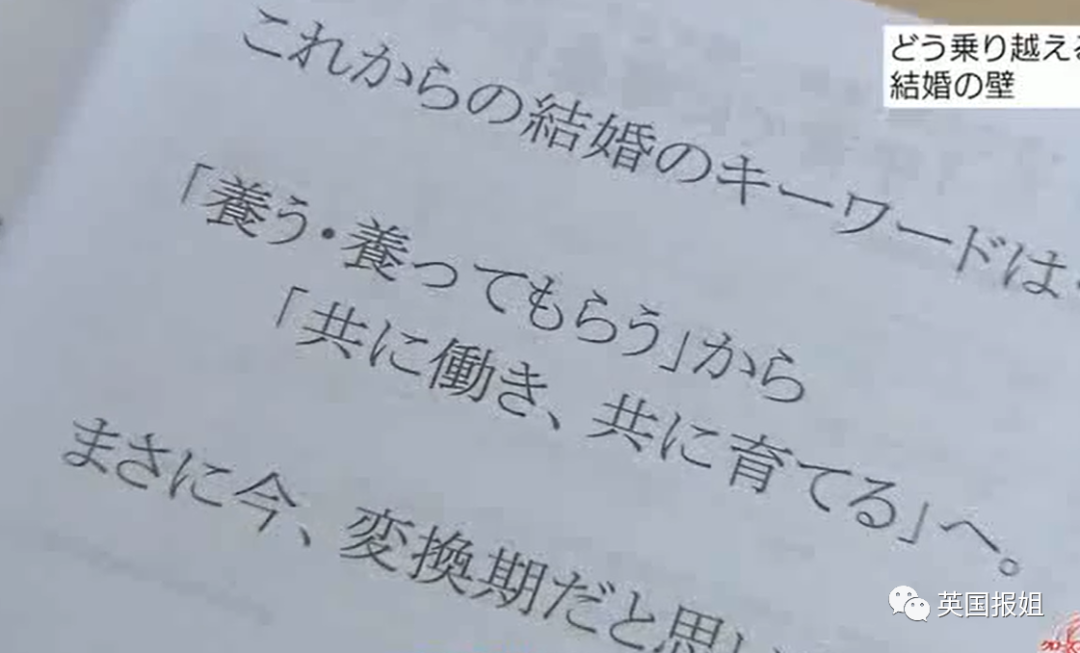 どう乗り越える
結婚の壁
これからの結婚のキーワードは
「養う・養ってもらう」から
「共に働き、共に育てる」へ。
まさに今、変換期だと思い
英国报姐